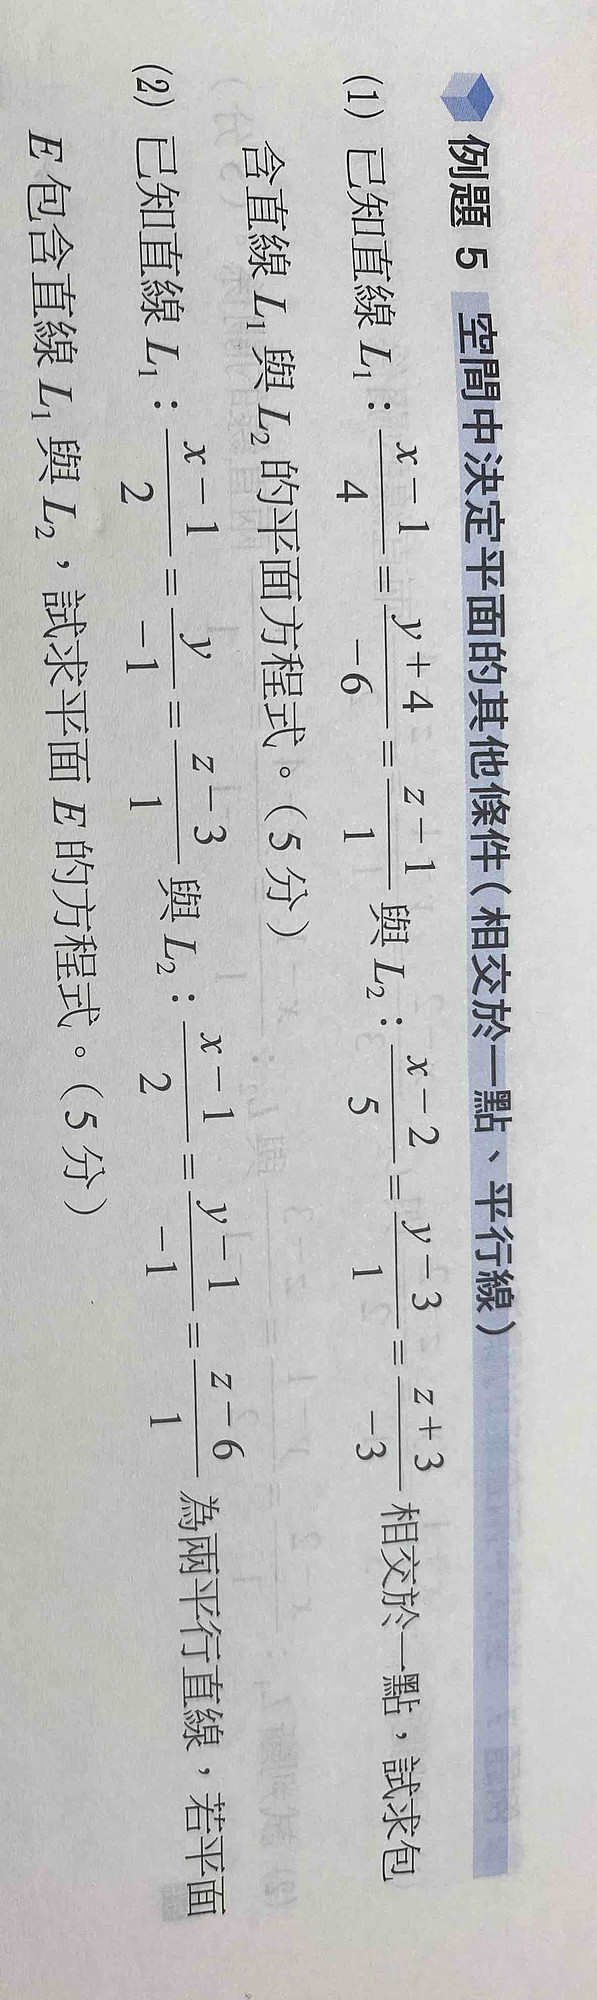 例題 5 空間中決定平面的其他條件(相交於一點、平行線)
(1) 已知直線 L₁：(x−1)/4 = (y+4)/−6 = (z−1)/1 與 L₂：(x−2)/5 = (y−3)/1 = (z+3)/−3 相交於一點，試求包
含直線 L₁ 與 L₂ 的平面方程式。(5 分)
(2) 已知直線 L₁：(x−1)/2 = y/−1 = (z−3)/1 與 L₂：(x−1)/2 = (y−1)/−1 = (z−6)/1 為兩平行直線，若平面
E 包含直線 L₁ 與 L₂，試求平面 E 的方程式。(5 分)